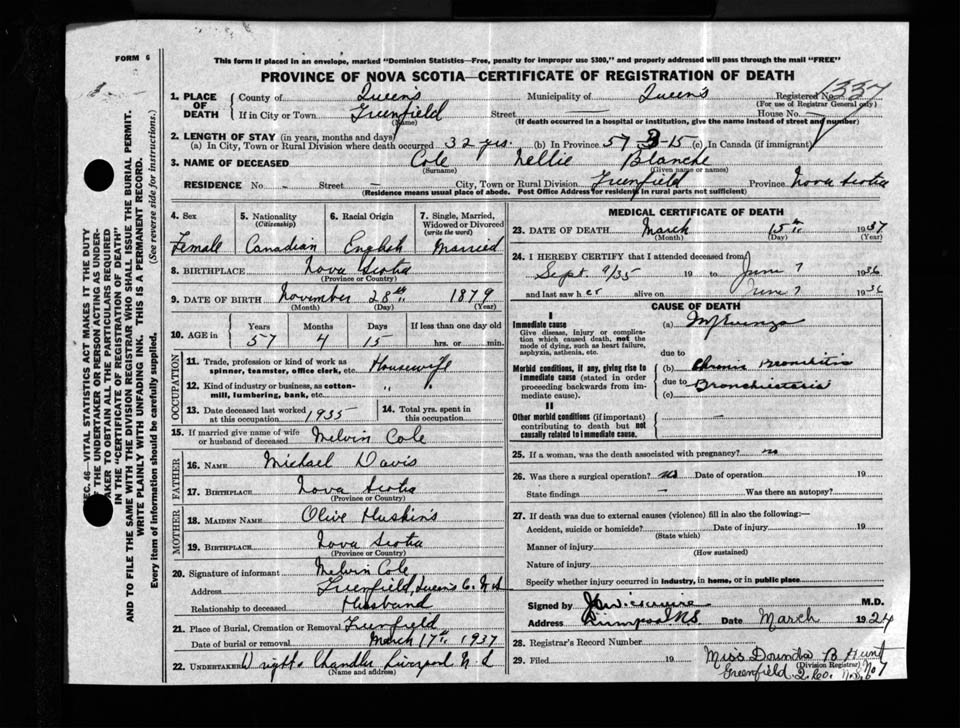 FORM 6
This form if placed in an envelope, marked "Dominion Statistics—Free, penalty for improper use $300," and properly addressed will pass through the mail "FREE"
PROVINCE OF NOVA SCOTIA—CERTIFICATE OF REGISTRATION OF DEATH
SEC. 46—VITAL STATISTICS ACT MAKES IT THE DUTY
OF THE UNDERTAKER OR PERSON ACTING AS UNDER-
TAKER TO OBTAIN ALL THE PARTICULARS REQUIRED
IN THE "CERTIFICATE OF REGISTRATION OF DEATH"
AND TO FILE THE SAME WITH THE DIVISION REGISTRAR WHO SHALL ISSUE THE BURIAL PERMIT.
WRITE PLAINLY WITH UNFADING INK. THIS IS A PERMANENT RECORD.
Every item of information should be carefully supplied. (See reverse side for instructions.)
1. PLACE OF DEATH County of Queens Municipality of Queens Registered No. 1337
(For use of Registrar General only)
If in City or Town Greenfield Street House No.
(Name) (If death occurred in a hospital or institution, give the name instead of street and number)
2. LENGTH OF STAY (in years, months and days)
(a) In City, Town or Rural Division where death occurred 32 yrs. (b) In Province 57 3-15 (c) In Canada (if immigrant)
3. NAME OF DECEASED Cole Nellie Blanche
(Surname) (Given name or names)
RESIDENCE No. - Street - City, Town or Rural Division Greenfield Province Nova Scotia
(Residence means usual place of abode. Post Office Address for residents in rural parts not sufficient)
4. Sex Female
5. Nationality (Citizenship) Canadian
6. Racial Origin English
7. Single, Married, Widowed or Divorced (write the word) Married
8. BIRTHPLACE Nova Scotia
(Province or Country)
9. DATE OF BIRTH November 28th 1879
(Month) (Day) (Year)
10. AGE in Years 57 Months 4 Days 15 If less than one day old hrs. or min.
OCCUPATION
11. Trade, profession or kind of work as spinner, teamster, office clerk, etc. Housewife
12. Kind of industry or business, as cotton-mill, lumbering, bank, etc. "
13. Date deceased last worked at this occupation 1935
14. Total yrs. spent in this occupation
15. If married give name of wife or husband of deceased Melvin Cole
FATHER
16. NAME Michael Davis
17. BIRTHPLACE Nova Scotia
(Province or Country)
MOTHER
18. MAIDEN NAME Olive Huskins
19. BIRTHPLACE Nova Scotia
(Province or Country)
20. Signature of informant Melvin Cole
Address Greenfield, Queens Co. N.S
Relationship to deceased Husband
21. Place of Burial, Cremation or Removal Greenfield
Date of burial or removal March 17th 1937
22. UNDERTAKER Wright & Chandler Liverpool N.S
(Name and address)
MEDICAL CERTIFICATE OF DEATH
23. DATE OF DEATH March 15th 1937
(Month) (Day) (Year)
24. I HEREBY CERTIFY that I attended deceased from
Sept. 9/35 19 to June 7 1936
and last saw her alive on June 7 1936
CAUSE OF DEATH
I
Immediate cause
Give disease, injury or complication which caused death, not the mode of dying, such as heart failure, asphyxia, asthenia, etc.
(a) Influenza
due to
Morbid conditions, if any, giving rise to immediate cause (stated in order proceeding backwards from immediate cause).
(b) Chronic Bronchitis
due to Bronchiectasis
(c)
II
Other morbid conditions (if important) contributing to death but not causally related to immediate cause.
25. If a woman, was the death associated with pregnancy? no
26. Was there a surgical operation? no Date of operation 19
State findings - Was there an autopsy?
27. If death was due to external causes (violence) fill in also the following:—
Accident, suicide or homicide? Date of injury 19
(State which)
Manner of injury
(How sustained)
Nature of injury
Specify whether injury occurred in industry, in home, or in public place
Signed by M.D.
Address Liverpool N.S. Date March 1924
28. Registrar's Record Number
29. Filed 19 Miss B Hunt
(Division Registrar)
Greenfield Q. Co. No 7